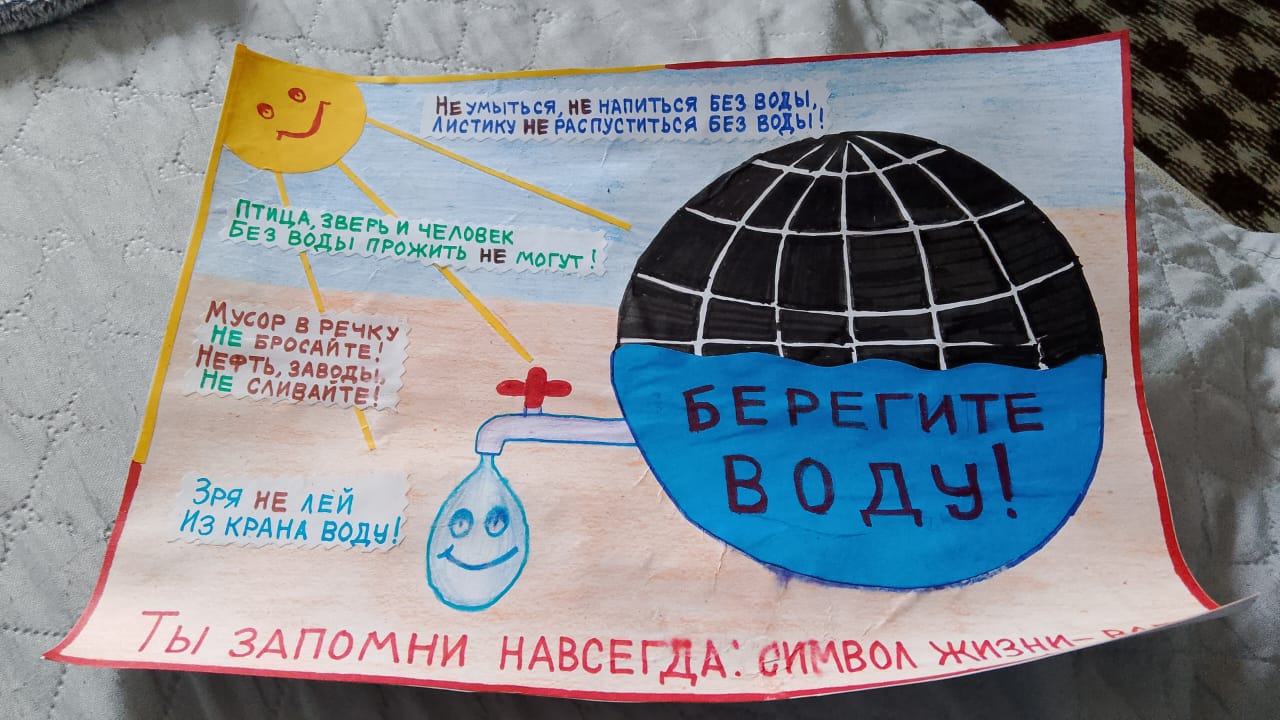 НЕ УМЫТЬСЯ, НЕ НАПИТЬСЯ БЕЗ ВОДЫ,
ЛИСТИКУ НЕ РАСПУСТИТЬСЯ БЕЗ ВОДЫ!
ПТИЦА, ЗВЕРЬ И ЧЕЛОВЕК
БЕЗ ВОДЫ ПРОЖИТЬ НЕ МОГУТ!
МУСОР В РЕЧКУ
НЕ БРОСАЙТЕ!
НЕФТЬ, ЗАВОДЫ,
НЕ СЛИВАЙТЕ!
БЕРЕГИТЕ
ВОДУ!
ЗРЯ НЕ ЛЕЙ
ИЗ КРАНА ВОДУ!
ТЫ ЗАПОМНИ НАВСЕГДА: СИМВОЛ ЖИЗНИ –